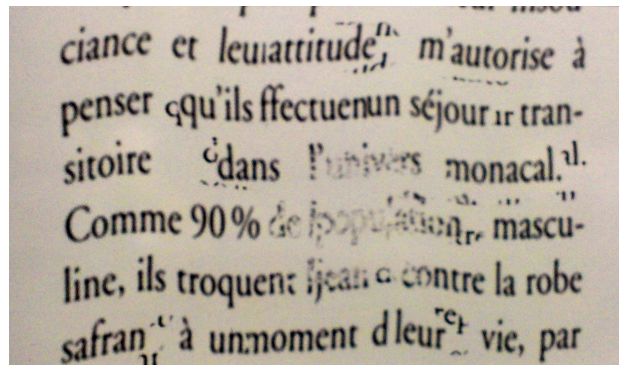 ciance et leur attitude, m'autorise à
penser qu'ils effectuent un séjour tran-
sitoire dans l'univers monacal.
Comme 90 % de la population mascu-
line, ils troquent jean contre la robe
safran à un moment de leur vie, par